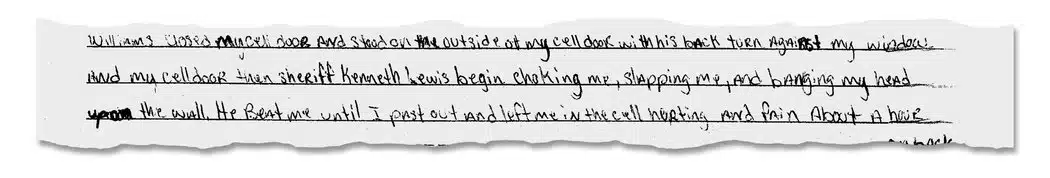 Williams closed my cell door And stood on the outside of my cell door with his back turn Against my window
And my cell door then sheriff Kenneth Lewis begin choking me, slapping me, and banging my head
upon the wall. He Beat me until I past out and left me in the cell hurting and Pain About A hour
back